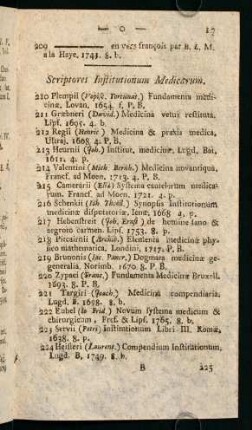 — o — 17
209 ———— en vers françois par B. L. M.
a la Haye, 1741. 8. b.
Scriptores Institutionum Medicarum.
210 Plempii (Vopisc. Fortunat.) Fundamenta medi-
cinæ, Lovan. 1654. f. P. B.
211 Græbneri (David.) Medicina vetus restituta,
Lips. 1695. 4. b.
212 Regii (Henric.) Medicina & praxis medica,
1668. 4. P. B.
213 Heurnii (Joh.) Institut. medicinæ, Lugd. Bat,
1611. 4. p.
214 Valentini (Mich. Bernh.) Medicina novantiqua,
Francf. ad Moen. 1713. 4. P. B.
215 Camerarii (Eliæ) Systema cautelarum medica-
rum, Francf. ad Moen. 1721. 4. p.
216 Schenkii (Joh. Theod.) Synopsis institutionum
medicinæ disputatoriæ, Ienæ, 1668. 4. p.
217 Hebenstreit (Joh. Ernst) de homine sano &
ægroto carmen. Lips. 1753. 8. p.
218 Pitcairnii (Archib.) Elementa medicinæ phy-
sico mathematica, Londini, 1717. P. B.
219 Brunonis (Jac. Pancr.) Dogmata medicinæ ge-
generalia, Norimb. 1670. 8. P. B.
220 Zypæi (Franc.) Fundamenta Medicinæ Bruxell.
1693. 8. P. B.
221 Targiri (Joach.) Medicina compendiaria,
Lugd. B. 1698. 8. b.
222 Eubel Novum systema medicum &
chirurgicum, Fref. & Lips. 1765. 8. b.
223 Servii (Petri) Institutionum Libri III. Romæ,
1638. 8. p.
224 Heisteri (Laurent.) Compendium Institutionum,
Lugd. B, 1749. 8. b.
B 225